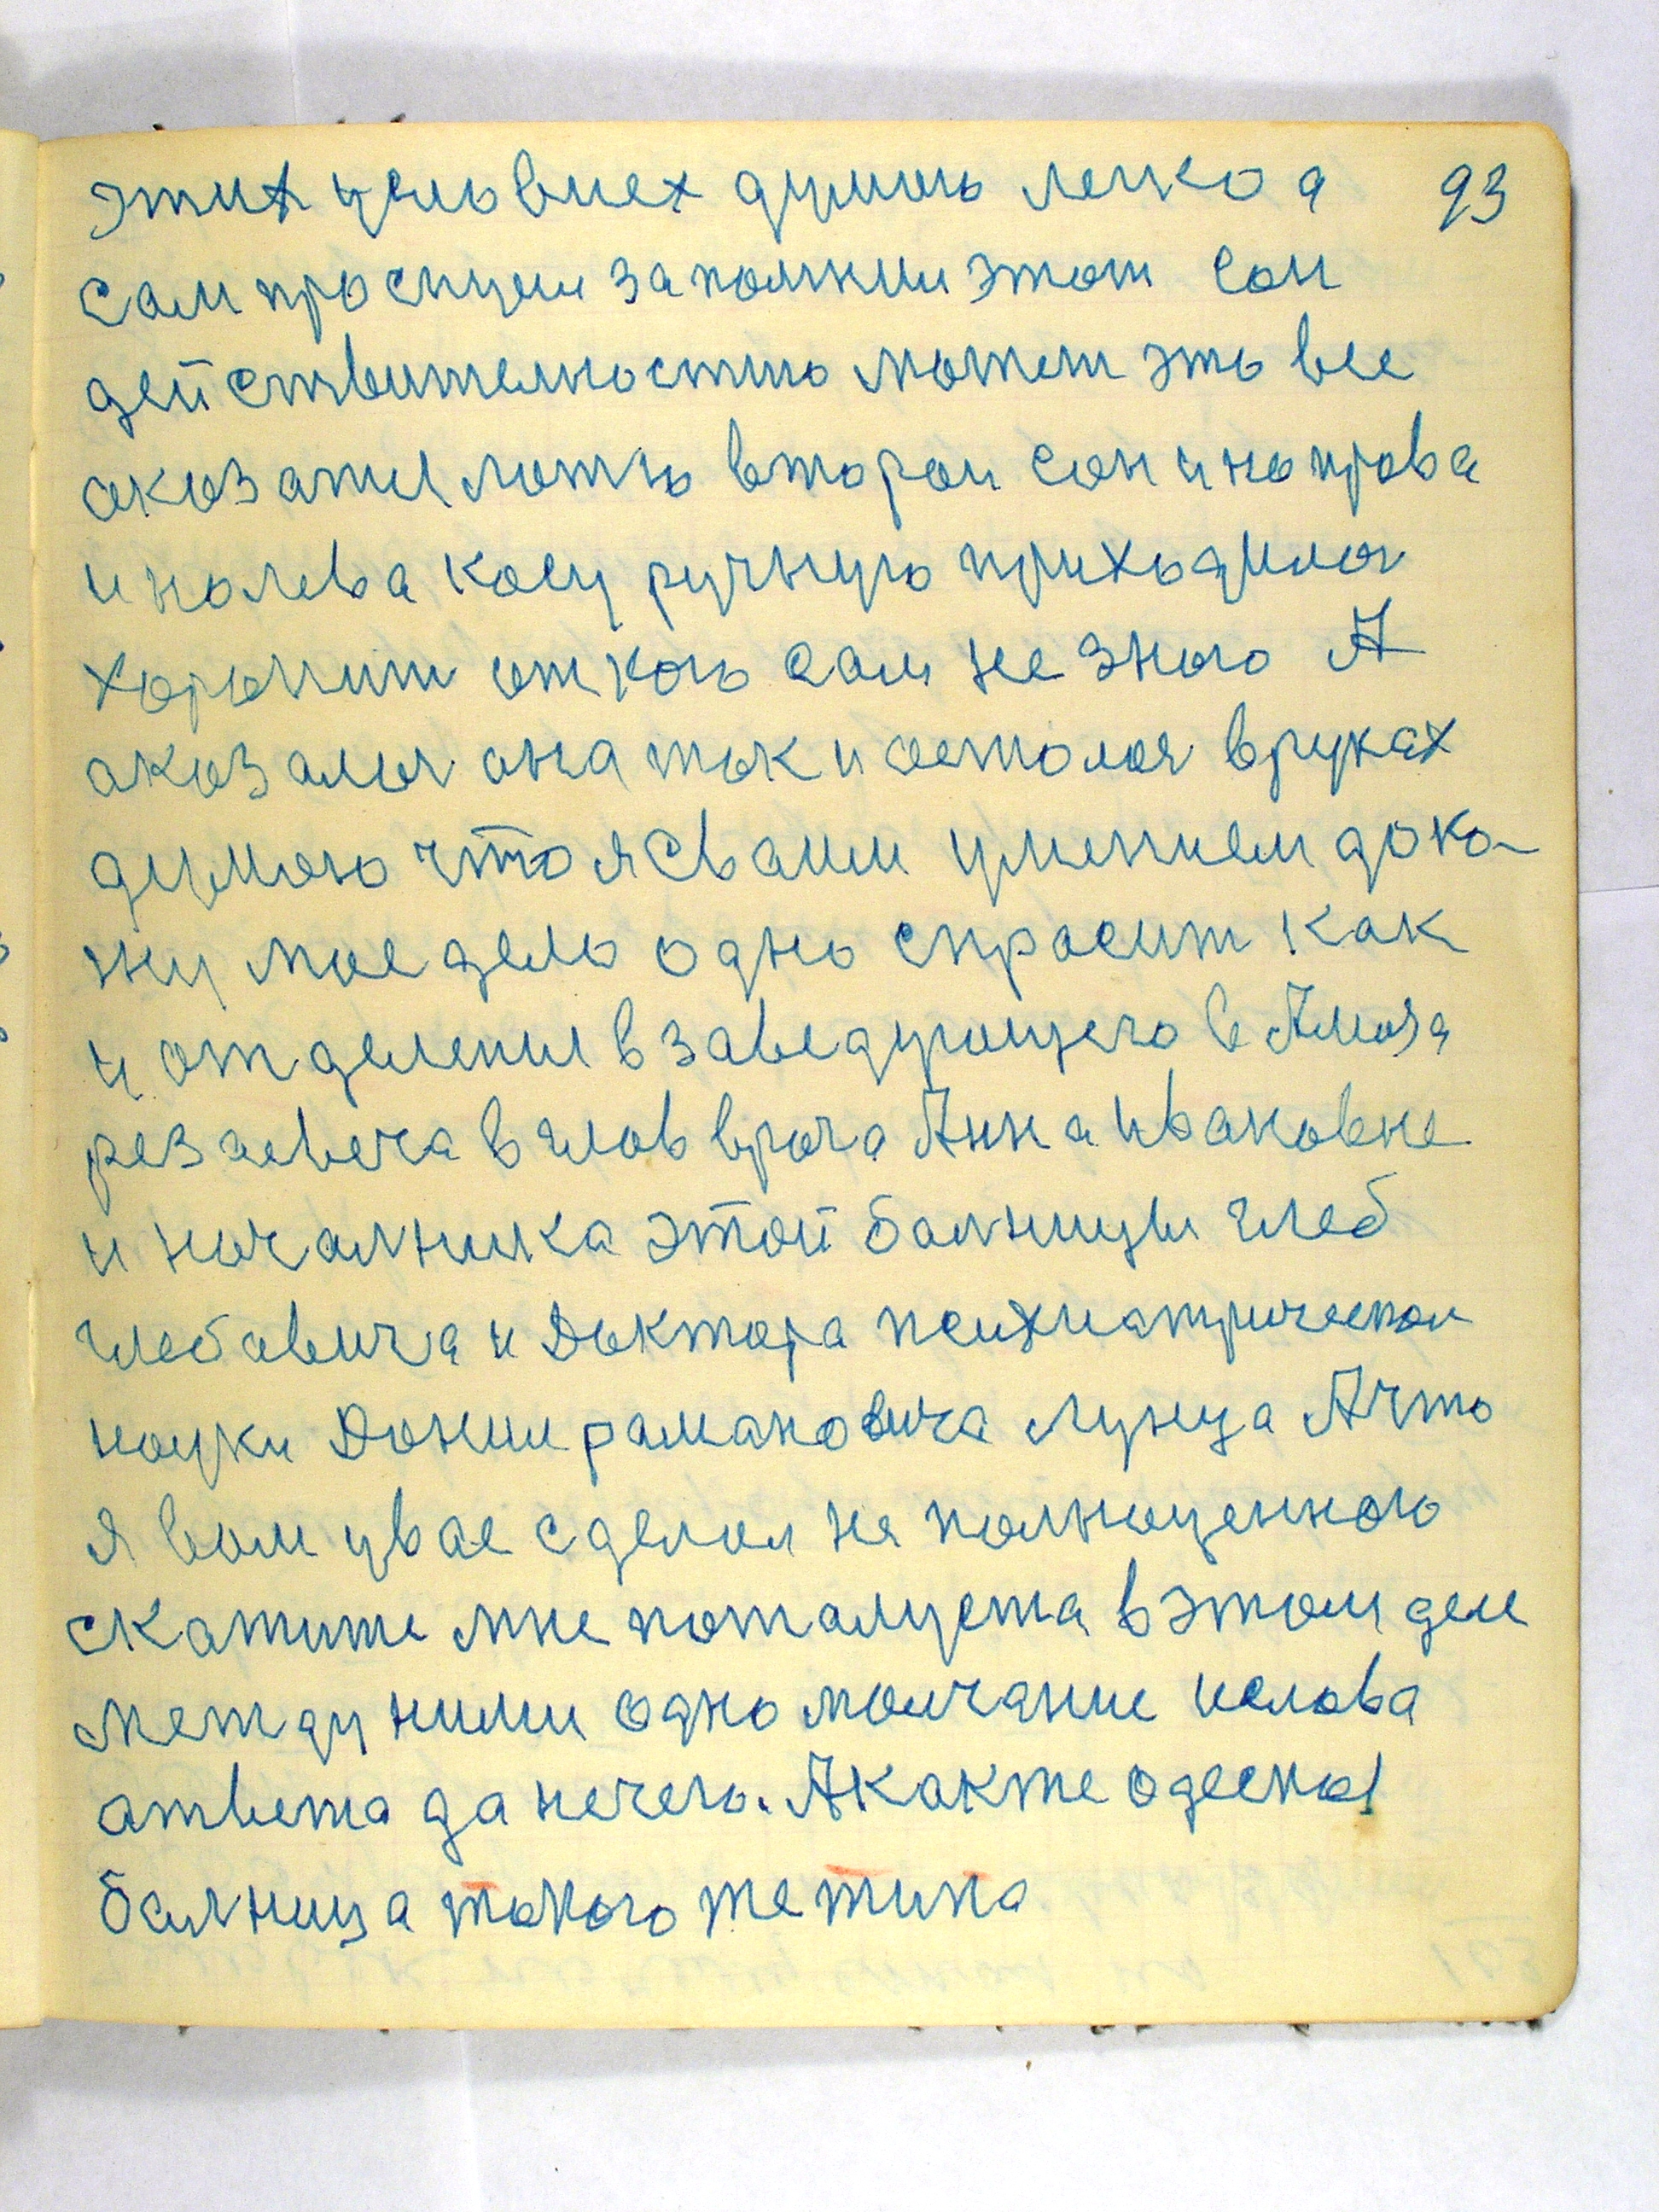 этих условиех думаю легко а 93
сам проснулся запомнил этот сон
действителностю может это все
оказатся ложю второй сон и направа
и налева косу ручную приходилоя
хоронит от кого сам не знаю А
оказалоя она так и осталоя в руках
думаю что я сваим умением дока-
жу мое дело одно спросит как
и отделения в заведующего в Амоза
резаевеча в глов врача Анна Ивановне
и начал ника этой балницы глеб
глебавича и Доктора психиатрическои
науки Дании рамановича лунца А что
я вам увас сделал не полноценного
скажите мне пожалуста в этом деле
между ними одно молчание и слова
ответа да нечего. А как же одесная
балница такого же типа